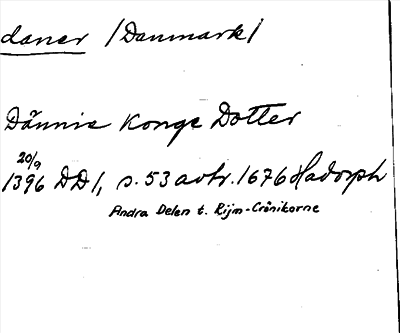 daner /Danmark/
Dännis Konge Dotter
20/9
1396 DD1, s. 53 avtr. 1676 Hadorph
Andra Delen t. Rijm-Crönikorne